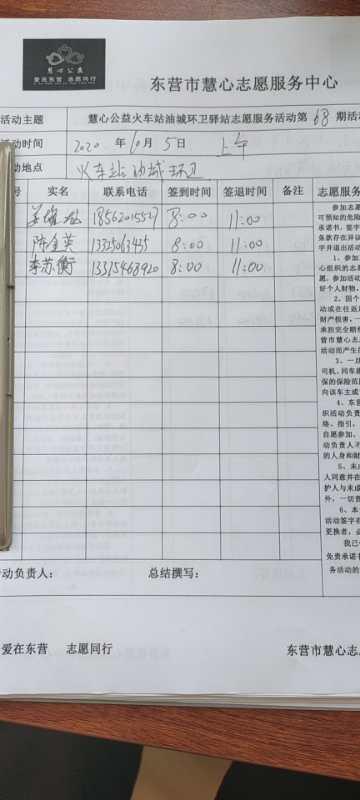 慧心公益
爱在东营 志愿同行
东营市慧心志愿服务中心
活动主题 慧心公益火车站油城环卫驿站志愿服务活动第68期活动
活动时间 2020 年 10 月 5 日 上午
动地点 火车站油城环卫
号 实名 联系电话 签到时间 签退时间 备注 志愿服务
18562015527 8:00 11:00
陈金英 8:00 11:00
李苏衡 13315468920 8:00 11:00
参加志愿
可预知的危险
承诺书，签字
条款存在异议
字并退出活动
1、参加
心组织的志愿
愿。参加活动
好个人财物，
2、因个
动或在往返
财产损害，一
承担完全赔
营市慧心志
活动而产生
3、一旦
司机、同车
保的保险范
向该车主或
4、东营
织活动负责
络、指引、
自愿参加，
动负责人不
的人身和财
5、未成
人同意并在
护人与未成
外，一切责
6、本
活动签字
更换者，必
我已
免责承诺书
务活动的
动负责人： 总结撰写：
爱在东营 志愿同行 东营市慧心志